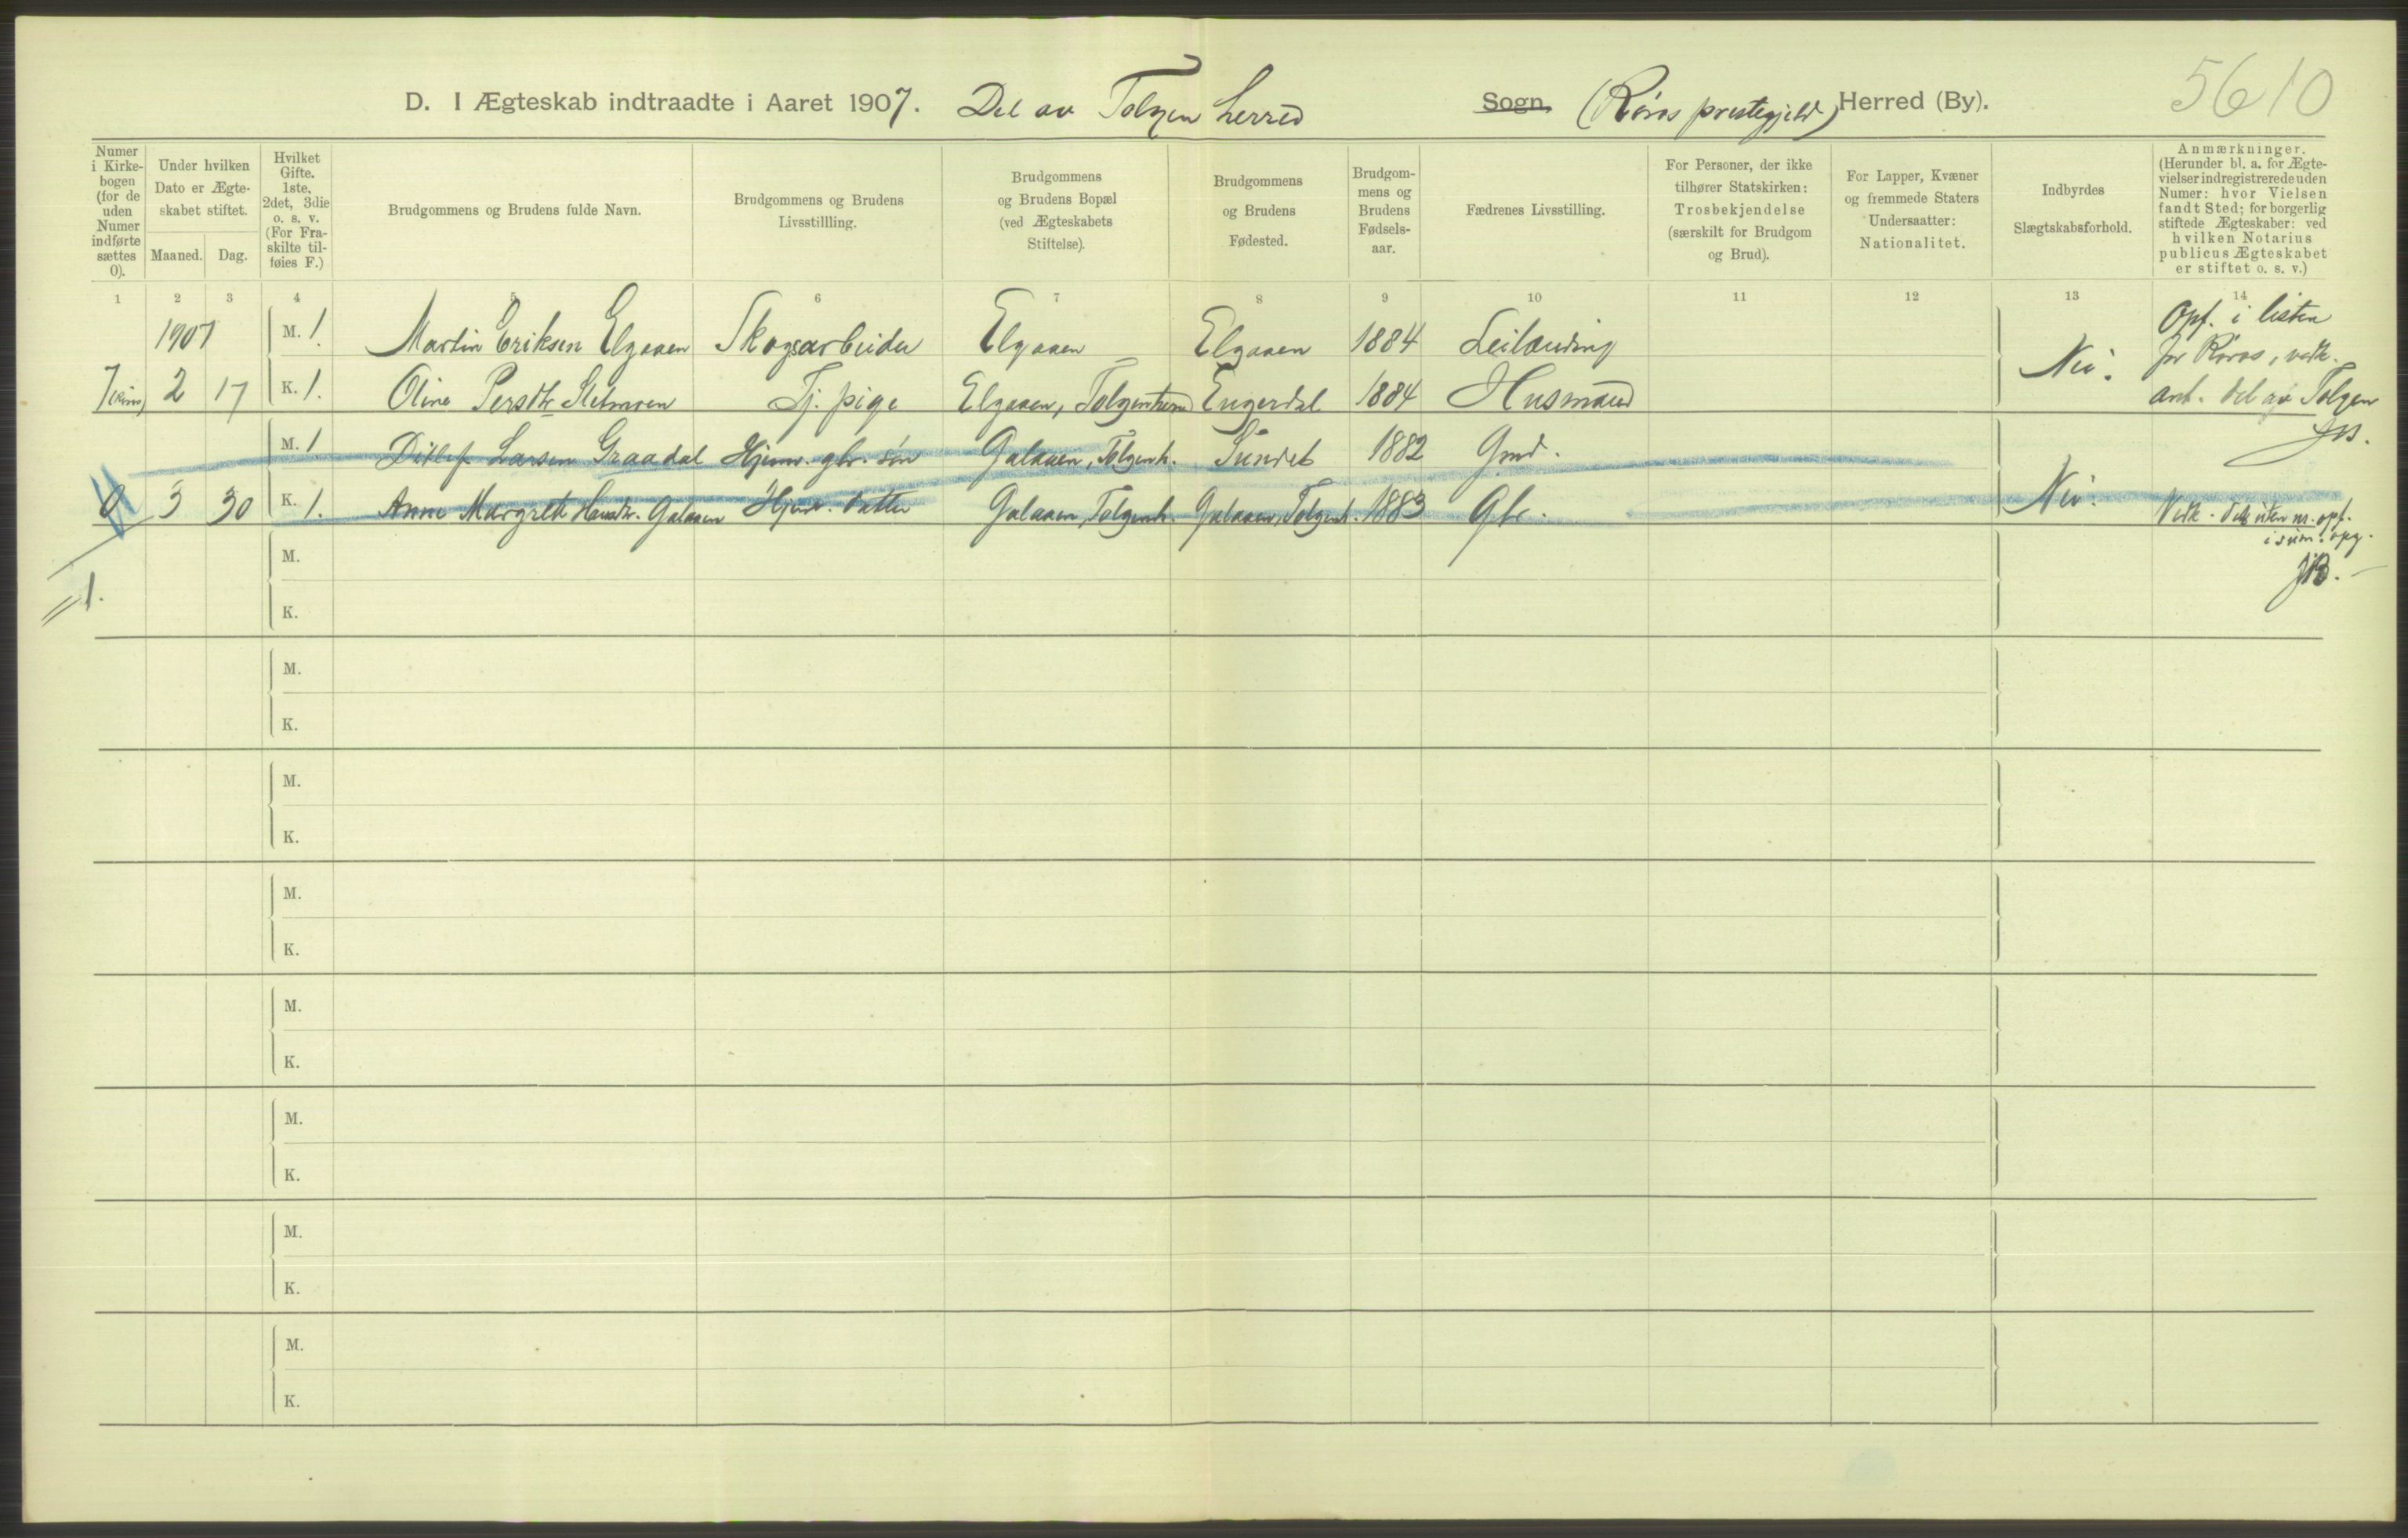 D. I Ægteskab indtraadte i Aaret 1907. Del av Tolgen herred Sogn (Røros prestegjeld) Herred (By). 5610
Numer i Kirkebogen (for de uden Numer indførte sættes 0).
Under hvilken Dato er Ægteskabet stiftet.
Maaned. Dag.
Hvilket Gifte. 1ste, 2det, 3die o. s. v. (For Fraskilte tilføies F.)
Brudgommens og Brudens fulde Navn.
Brudgommens og Brudens Livsstillling.
Brudgommens og Brudens Bopæl (ved Ægteskabets Stiftelse).
Brudgommens og Brudens Fødested.
Brudgommens og Brudens Fødselsaar.
Fædrenes Livsstilling.
For Personer, der ikke tilhører Statskirken: Trosbekjendelse (særskilt for Brudgom og Brud).
For Lapper, Kvæner og fremmede Staters Undersaatter: Nationalitet.
Indbyrdes Slægtskabsforhold.
Anmærkninger. (Herunder bl. a. for Ægtevielser indregistrerede uden Numer: hvor Vielsen fandt Sted; for borgerlig stiftede Ægteskaber: ved hvilken Notarius publicus Ægteskabet er stiftet o. s. v.)
1 2 3 4 5 6 7 8 9 10 11 12 13 14
1907 M. 1. Martin Eriksen Elgaaen Skogsarbeider Elgaaen Elgaaen 1884 Leilænding Opf. i listen
for Røros, vedk.
7 2 17 K. 1. Oline Persdtr Tj. pige Elgaaen, Engerdal 1884 Husmand Nei. ant. del av Tolgen
JB.
M. 1. Ditlef Larsen Graadal Hjemv. gbr. søn Galaaen, Tolgenh. Sundet 1882 Gmd.
0 3 30 K. 1. Anne Margrete Hansdtr. Galaaen Hjemv. datter Galaaen, Tolgenh. Galaaen, Tolgenh. 1883 Gbr. Nei. Vedk. uten nr. opf.
i sum. opg.
JB.
1.
M.
K.
M.
K.
M.
K.
M.
K.
M.
K.
M.
K.
M.
K.
M.
K.